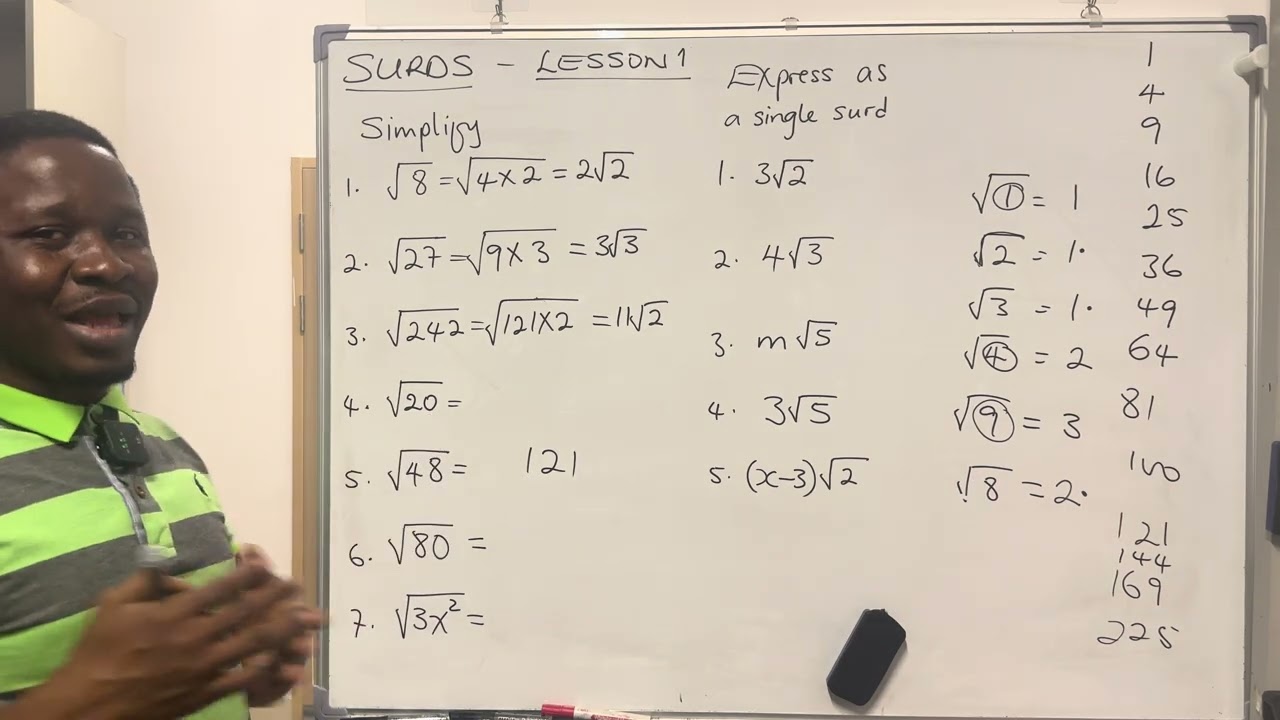 SURDS - LESSON 1
Simplify
1. √8 = √4×2 = 2√2
2. √27 = √9×3 = 3√3
3. √242 = √121×2 = 11√2
4. √20 =
5. √48 =
121
6. √80 =
7. √3x² =
Express as
a single surd
1. 3√2
2. 4√3
3. m√5
4. 3√5
5. (x-3)√2
√1 = 1
√2 = 1.
√3 = 1.
√4 = 2
√9 = 3
√8 = 2.
1
4
9
16
25
36
49
64
81
100
121
144
169
225